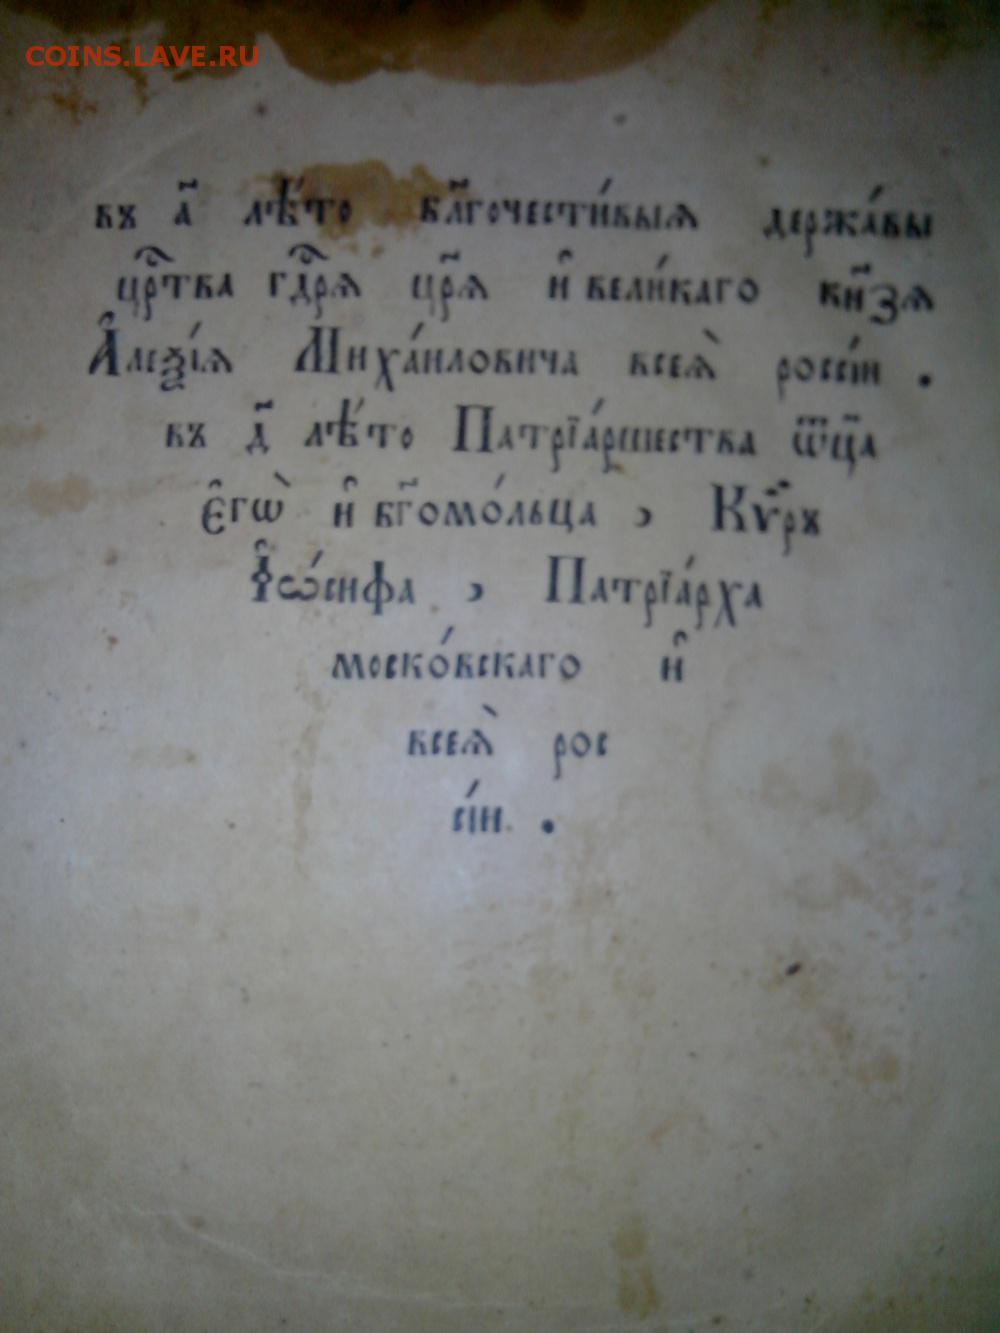 COINS.LAVE.RU
въ а҃ лѣ́то бл҃гочести́выѧ держа́вы
црⷭ҇тва гдⷭ҇рѧ цр҃ѧ и҆ вели́каго кн҃зѧ
А҆леѯі́ѧ Миха́иловича всеѧ̀ росси́и .
въ д҃ лѣ́то Патрїа́ршества ѿц҃а
є҆гѡ̀ и҆ бг҃омо́льца , Кѵ́ръ
І҆ѡ́сифа , Патрїа́рха
моско́вскаго и҆
всеѧ̀ рос
сі́и .